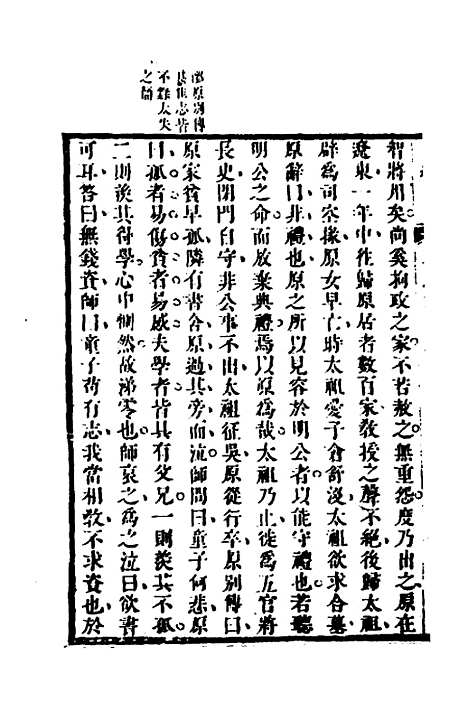 邴原別傳
甚佳志皆
不錄太失
之簡
智將用矣尚奚拘政之家不若赦之無重怨度乃出之原在
遼東一年中往歸原居者數百家教授之聲不絕後歸太祖
辟爲司空掾原女早亡時太祖愛子倉舒沒太祖欲求合墓
原辭曰非禮也原之所以見容於明公者以能守禮也若聽
明公之命而放棄典禮焉以原爲哉太祖乃止徙爲五官將
長史閉門自守非公事不出太祖征吳原從行卒原別傳曰
原家貧早孤隣有書舍原過其旁而泣師問曰童子何悲原
曰孤者易傷貧者易感夫學者皆具有父兄一則羨其不孤
二則羨其得學心中惻然故涕零也師哀之爲之泣曰欲書
可耳答曰無錢資師曰童子苟有志我當相教不求資也於